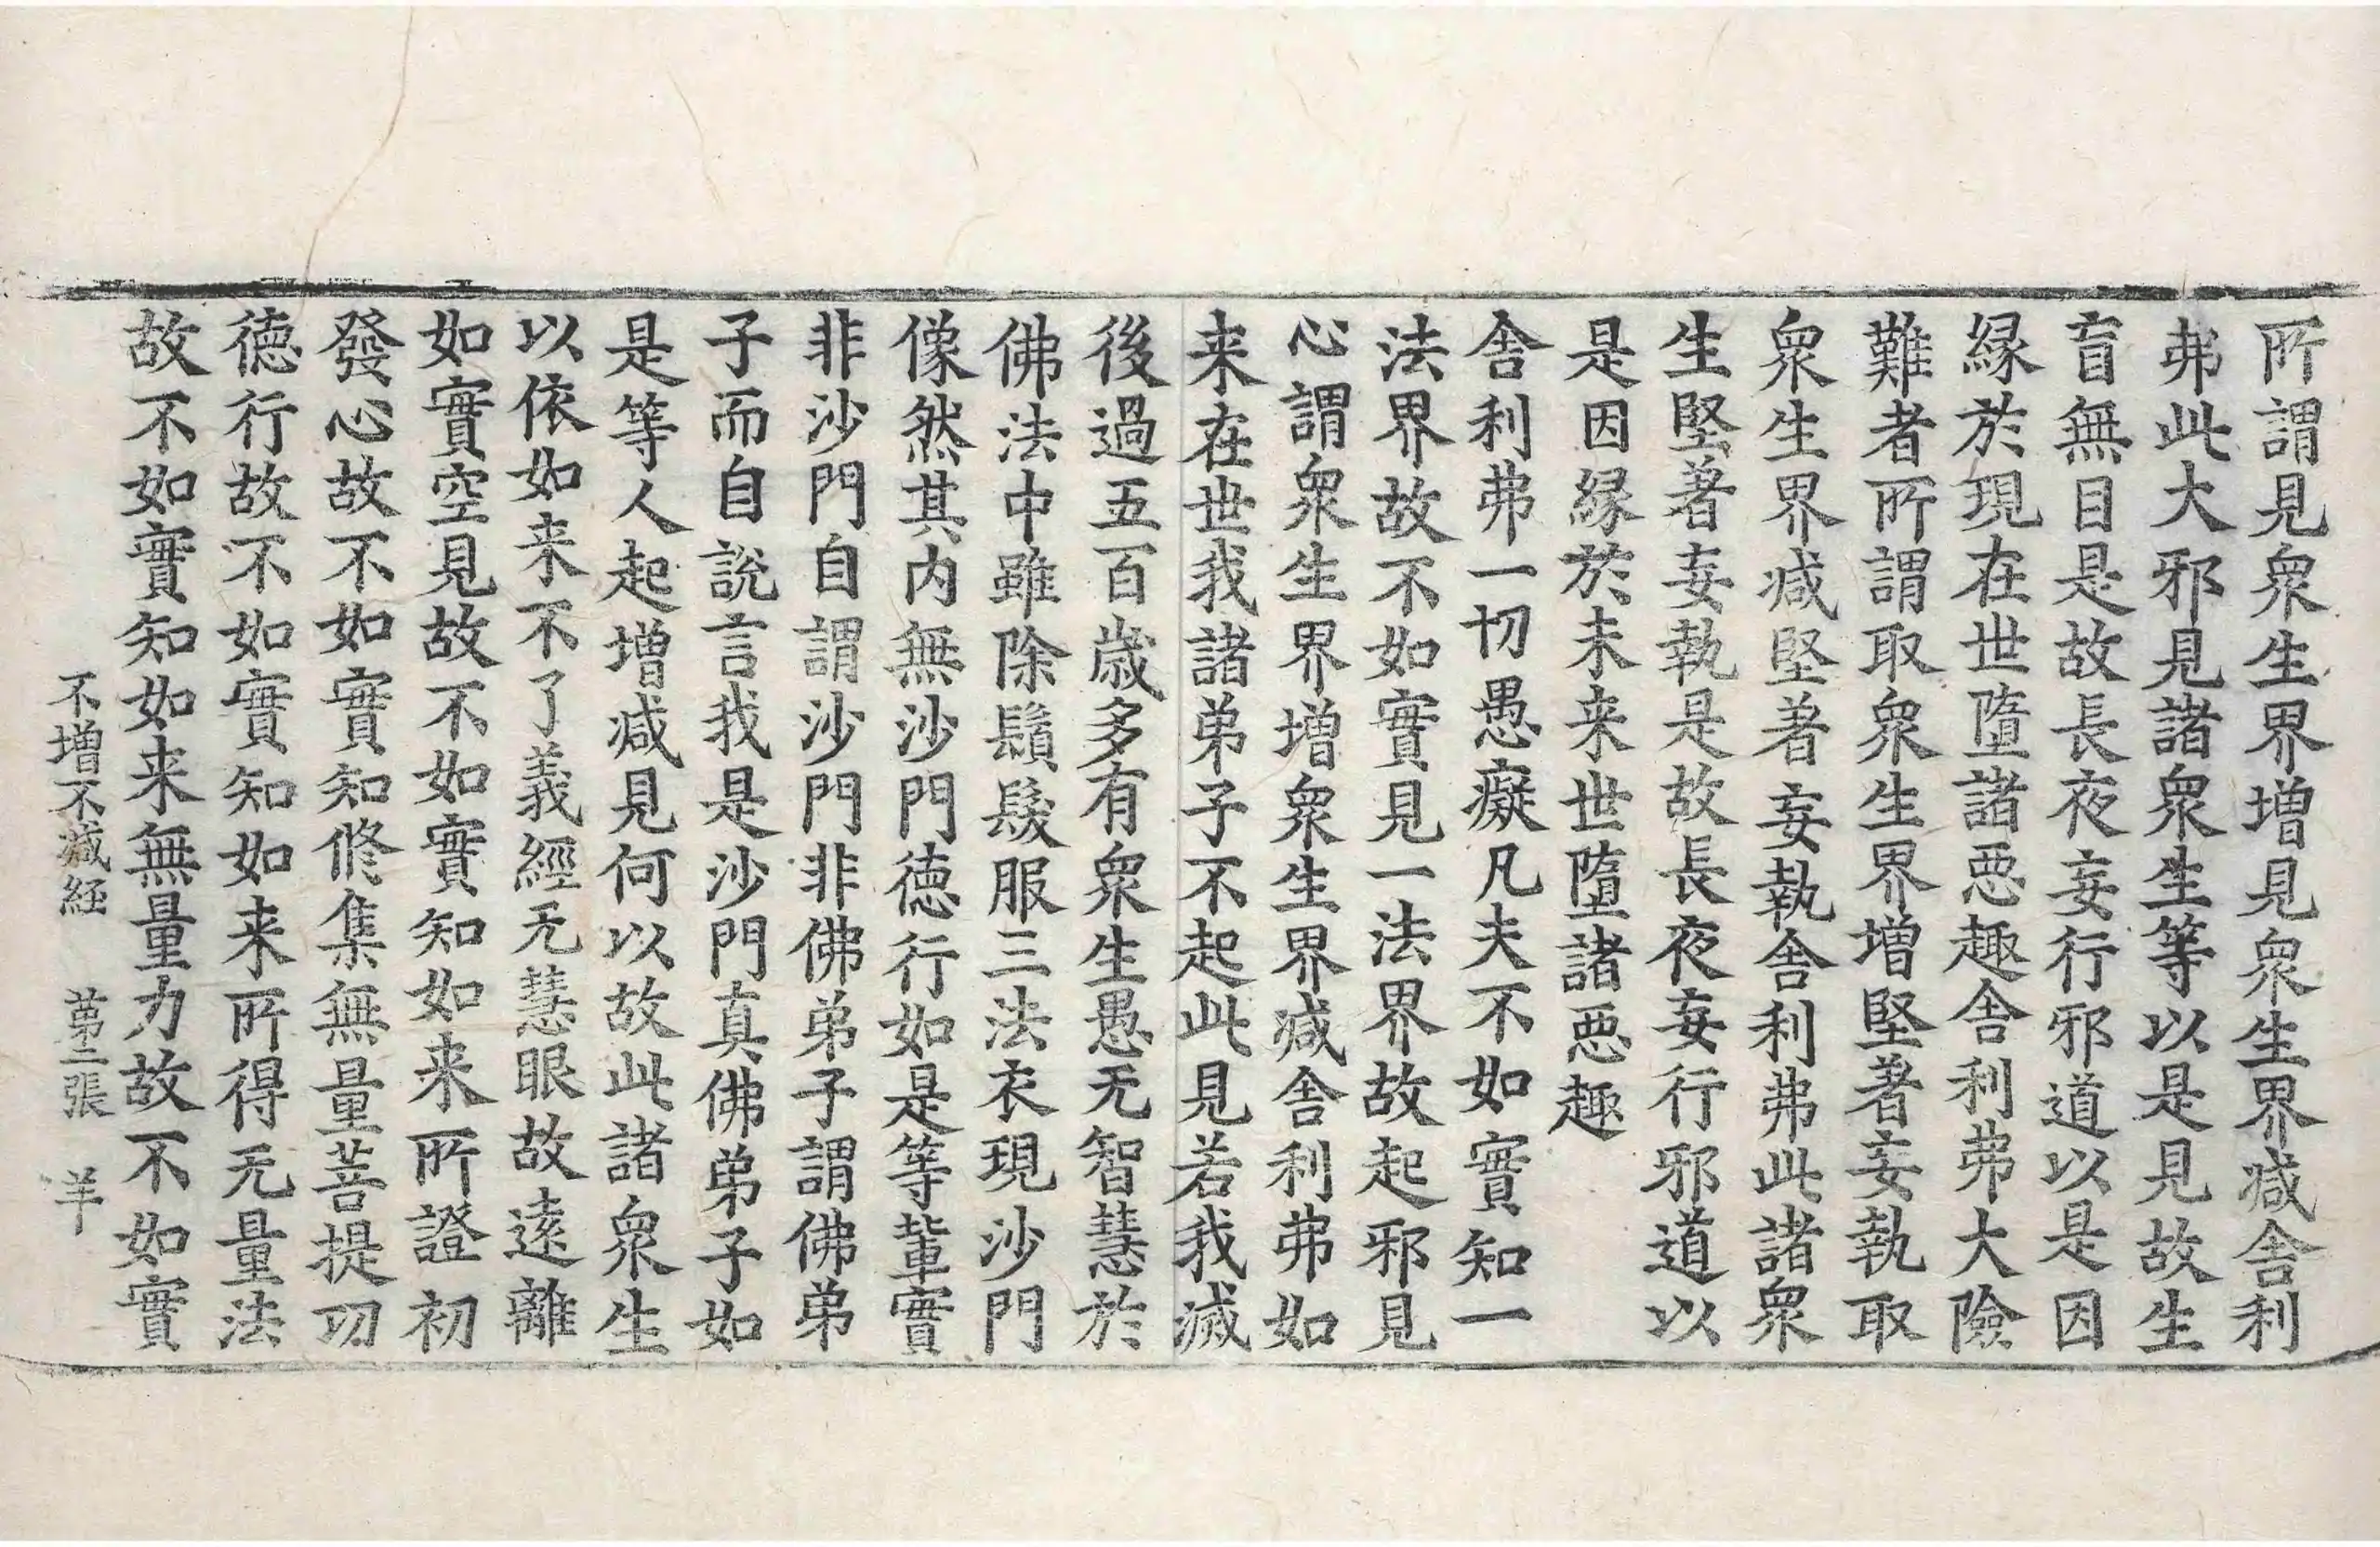 所謂見衆生界增見衆生界减舎利
弗此大邪見諸衆生等以是見故生
盲無目是故長夜妄行邪道以是因
縁於現在世墮諸惡趣舎利弗大險
難者所謂取衆生界增堅著妄執取
衆生界减堅著妄執舎利弗此諸衆
生堅著妄執是故長夜妄行邪道以
是因縁於未来世墮諸惡趣
舎利弗一切愚癡凡夫不如實知一
法界故不如實見一法界故起邪見
心謂衆生界增衆生界减舎利弗如
来在世我諸弟子不起此見若我滅
後過五百歳多有衆生愚无智慧於
佛法中雖除鬚髮服三法衣現沙門
像然其内無沙門徳行如是等輩實
非沙門自謂沙門非佛弟子謂佛弟
子而自說言我是沙門真佛弟子如
是等人起增减見何以故此諸衆生
以依如来不了義經无慧眼故逺離
如實空見故不如實知如来所證初
發心故不如實知修集無量菩提功
徳行故不如實知如来所得无量法
故不如實知如来無量力故不如實
不增不减経　第二張　羊